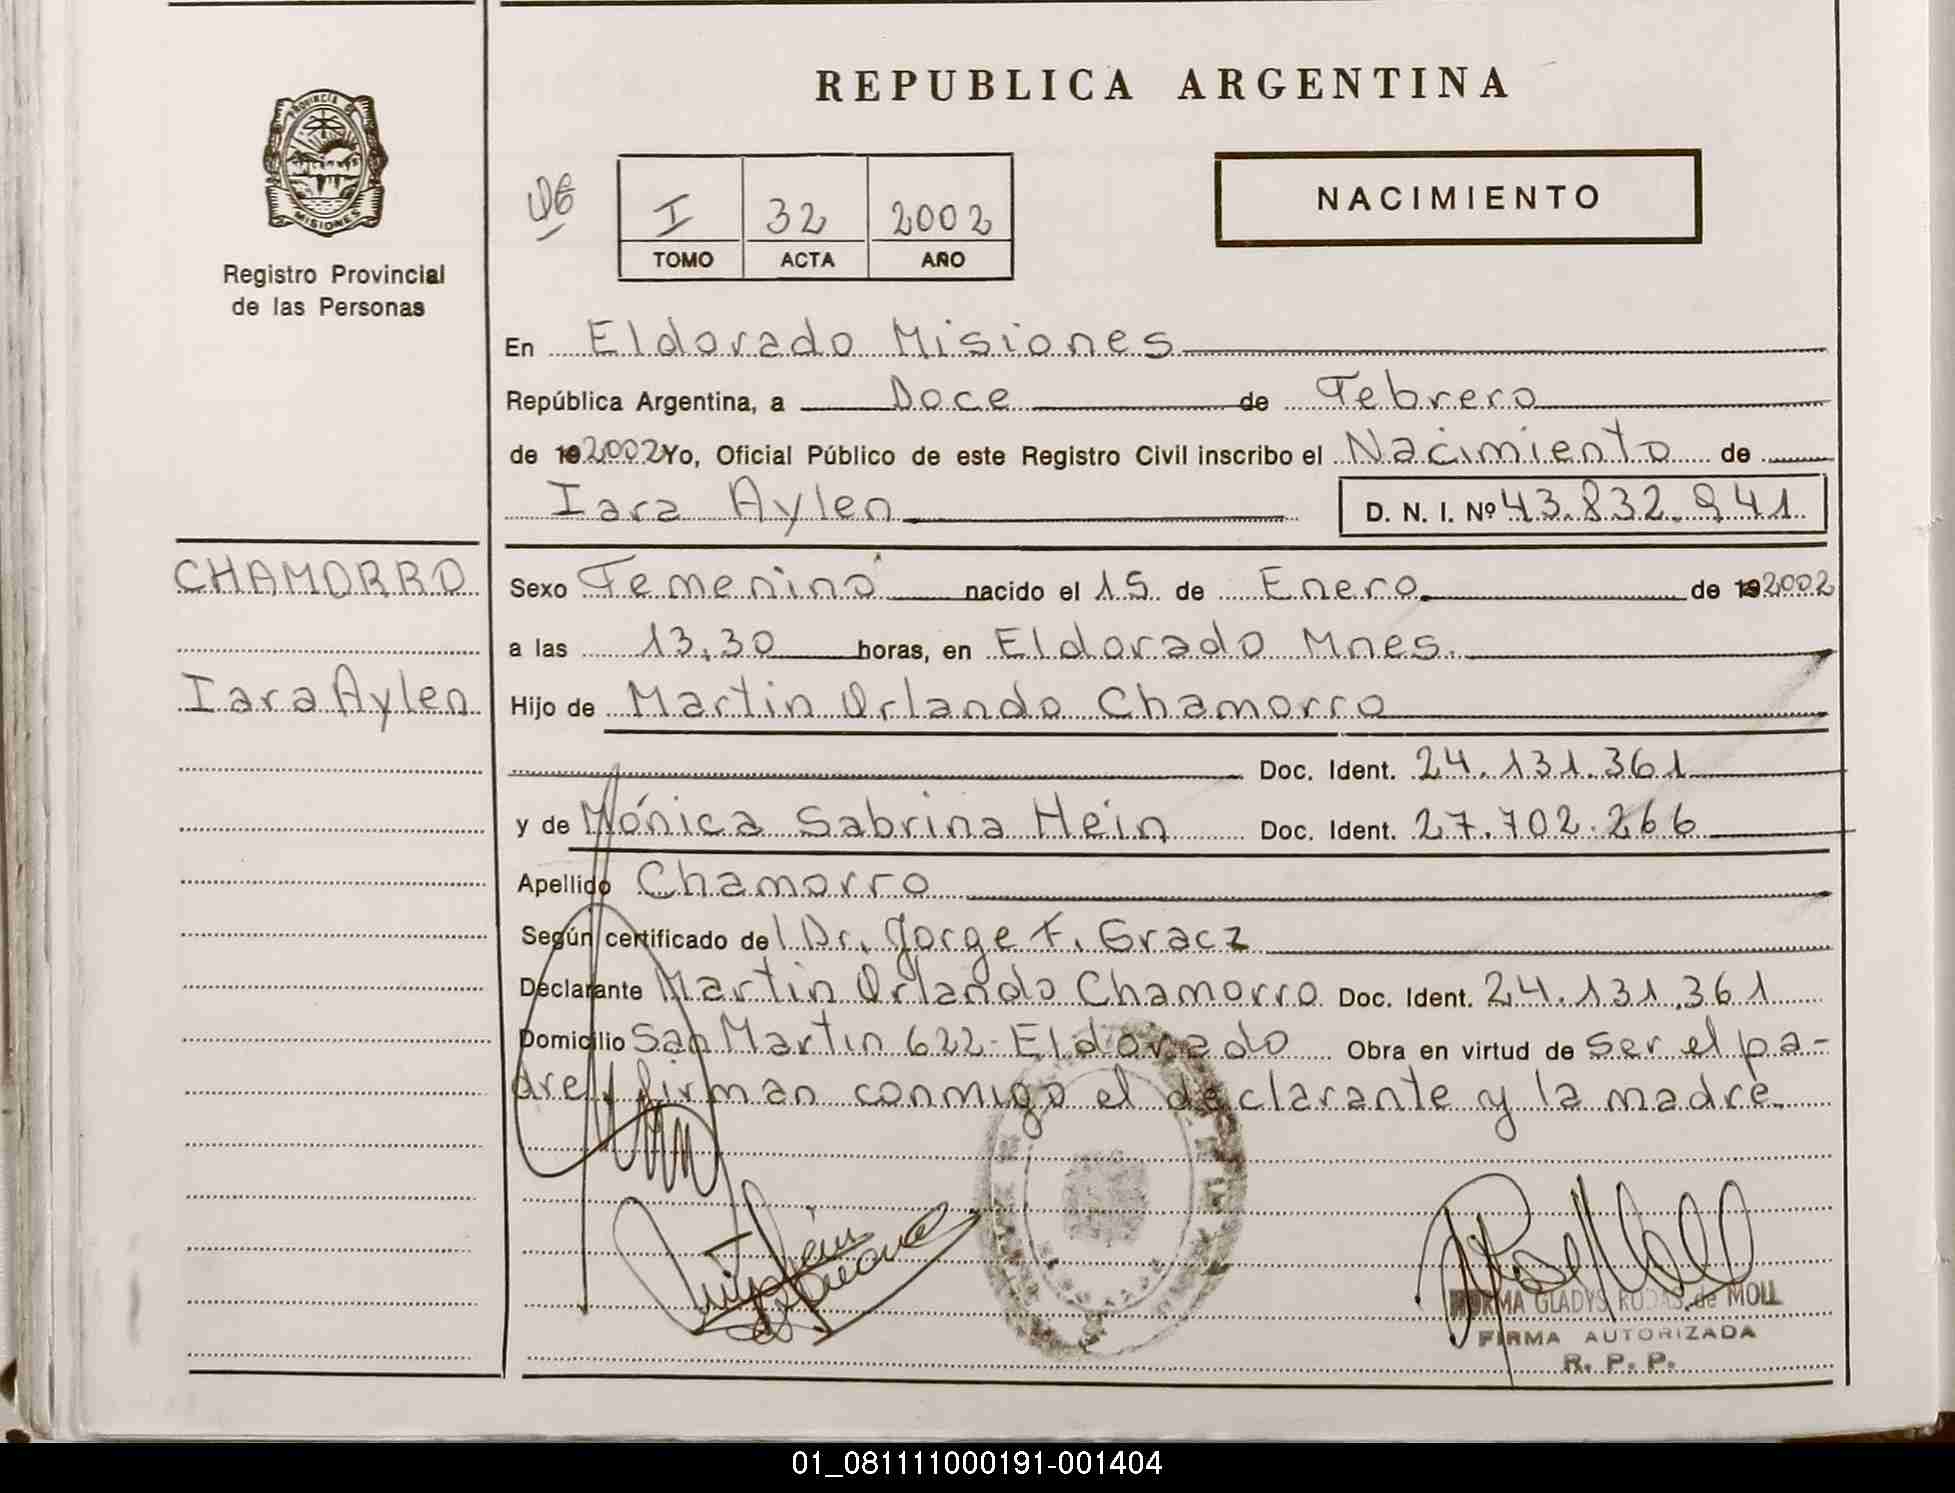 REPUBLICA ARGENTINA
PROVINCIA DE
MISIONES
Registro Provincial
de las Personas
I 32 2002
TOMO ACTA AÑO
NACIMIENTO
En Eldorado Misiones
República Argentina, a Doce de Febrero
de 19 2002 Yo, Oficial Público de este Registro Civil inscribo el Nacimiento de
Iara Aylen D. N. I. Nº 43.832.941
CHAMORRO
Iara Aylen
Sexo Femenino nacido el 15 de Enero de 19 2002
a las 13,30 horas, en Eldorado Mnes.
Hijo de Martin Orlando Chamorro
Doc. Ident. 24.131.361
y de Mónica Sabrina Hein Doc. Ident. 27.702.266
Apellido Chamorro
Según certificado del Dr. Jorge F. Gracz
Declarante Martin Orlando Chamorro Doc. Ident. 24.131.361
Domicilio San Martin 622- Eldorado Obra en virtud de ser el pa-
dre, firman conmigo el declarante y la madre.
NORMA GLADYS RODAS de MOLL
FIRMA AUTORIZADA
R. P. P.
01_081111000191-001404